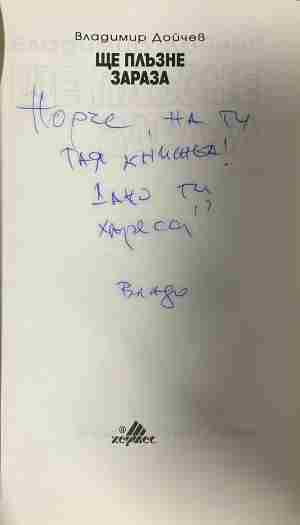 Владимир Дойчев
ЩЕ ПЛЪЗНЕ
ЗАРАЗА
Порче, на ти
тая книжка!
Дано ти
хареса!?
Владо
хермес